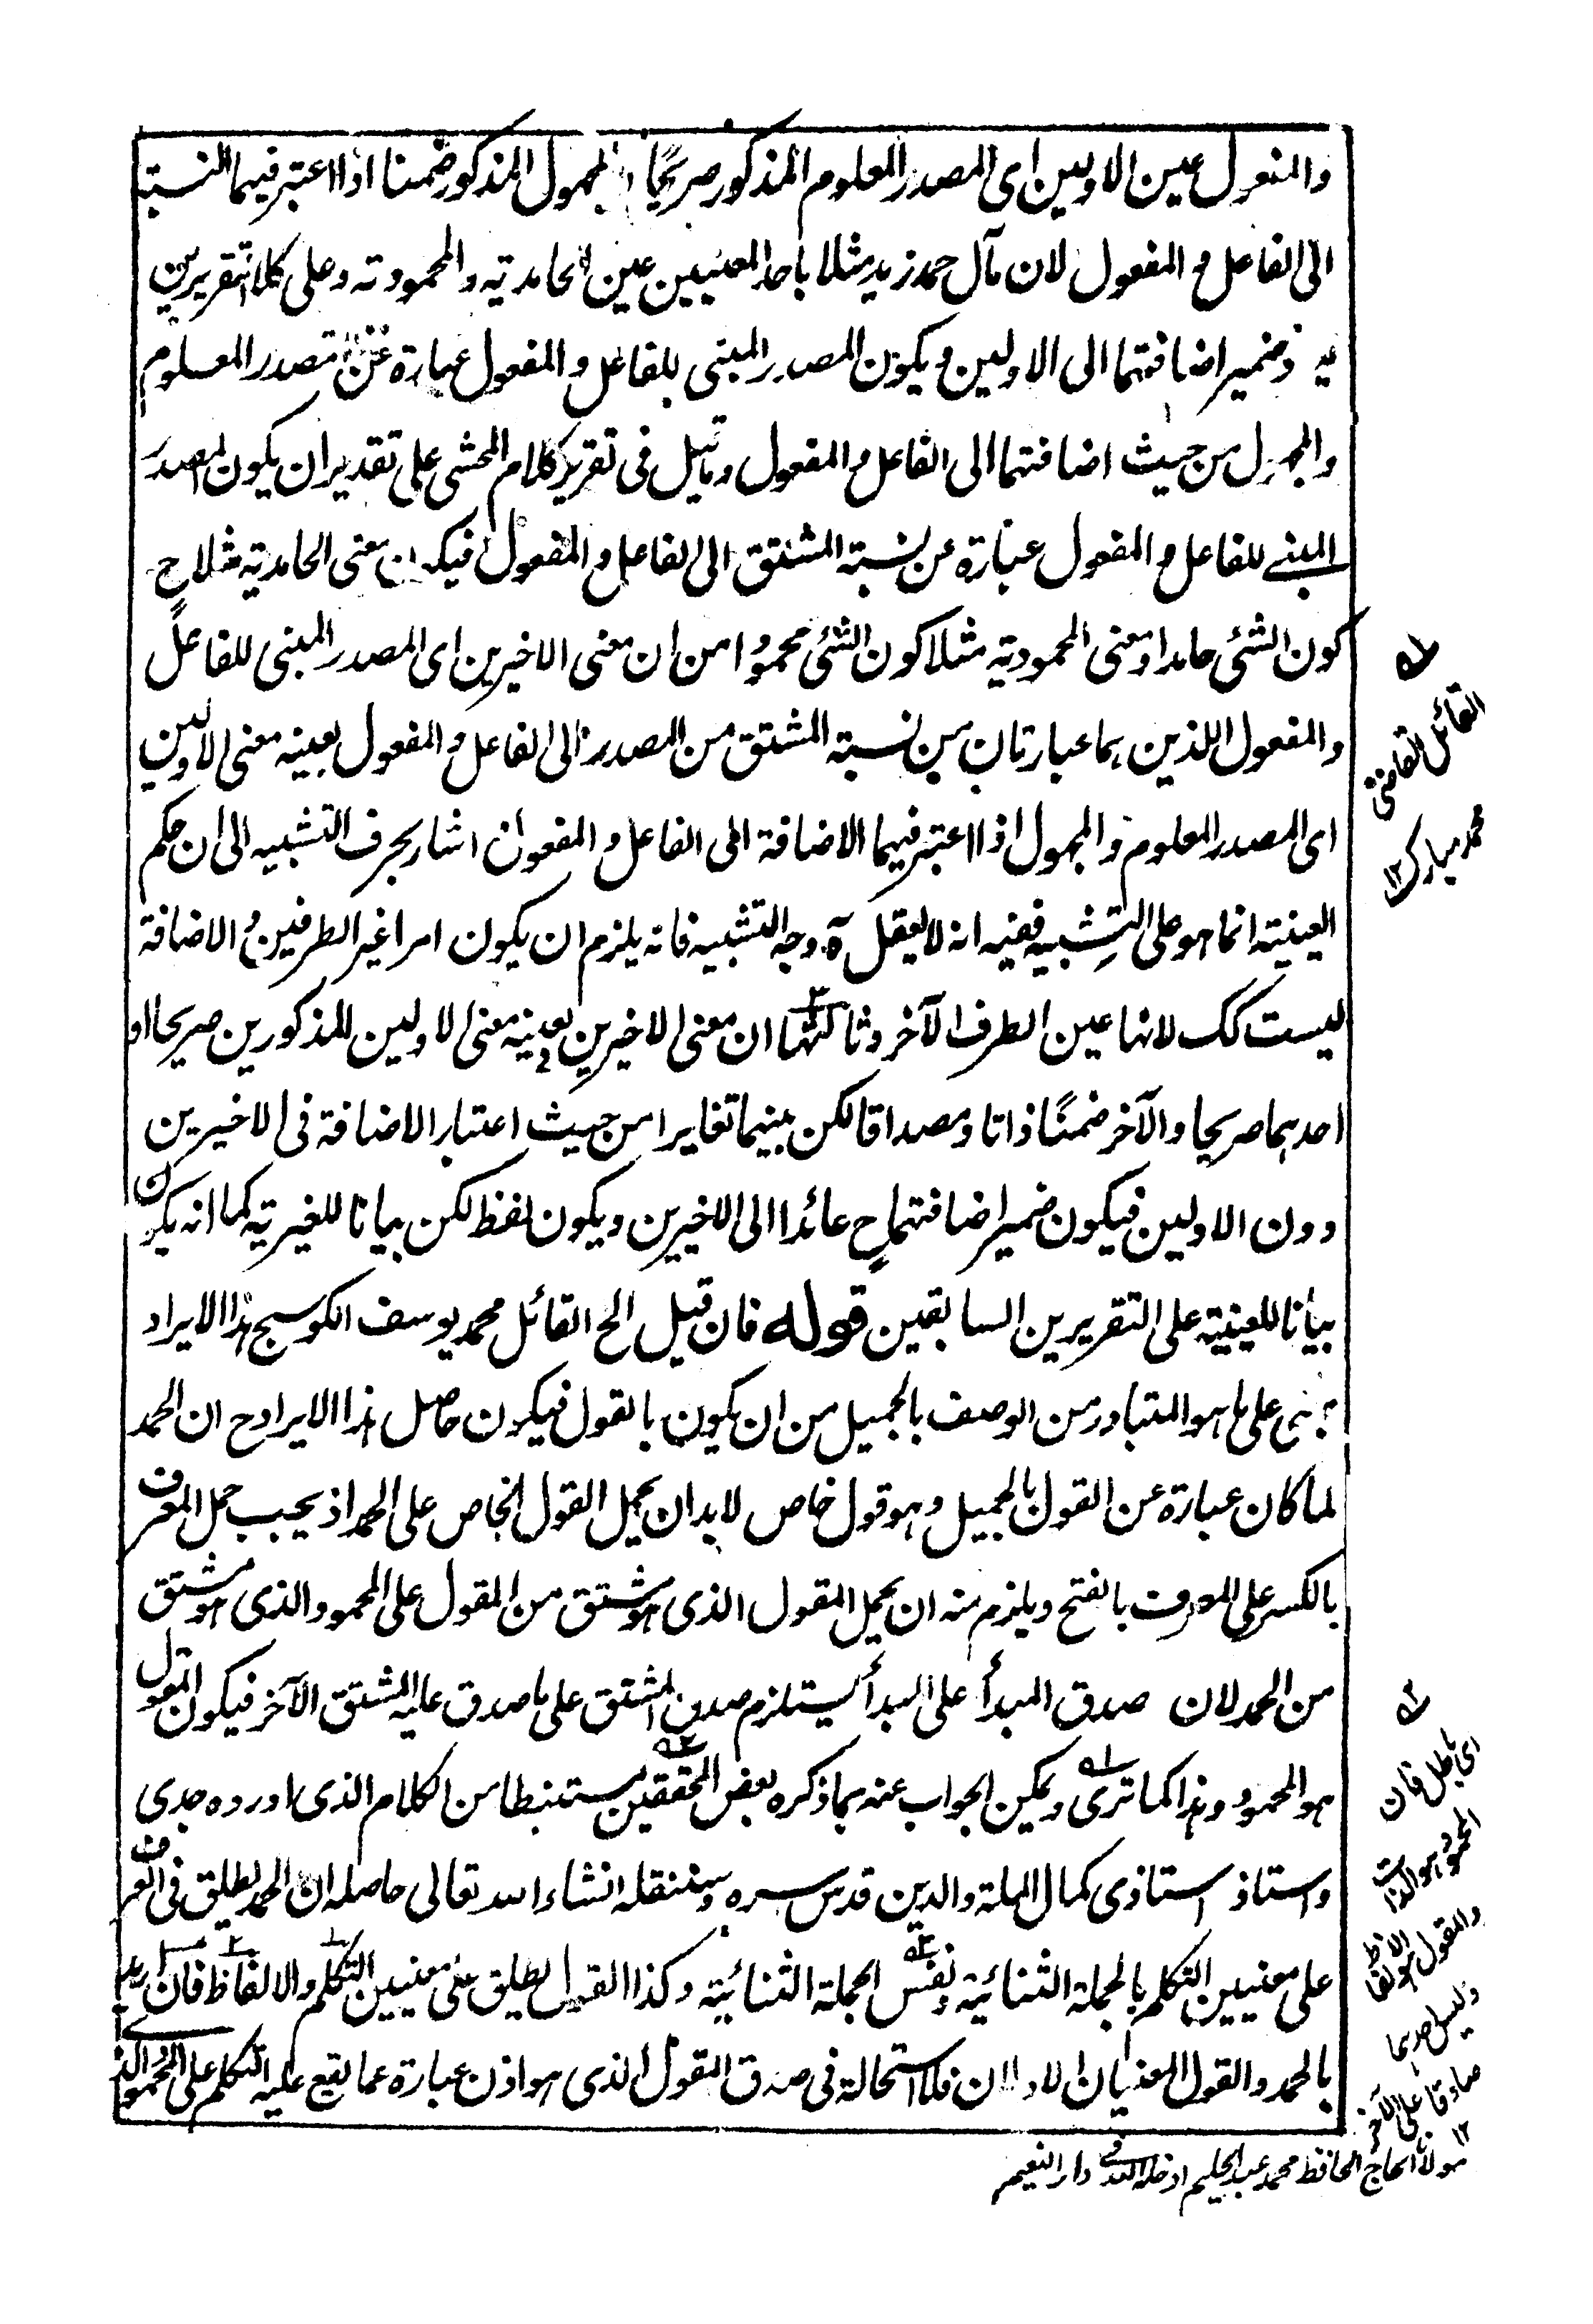 والمفعول عين الاولين اى المصدر المعلوم المذكور صريحًا والمجهول المذكور ضمنا اذا اعتبر فيهما النسبة
الى الفاعل و المفعول لان مآل حمد زيد مثلا باحد المعنيين عين الحامدية والمحمودية وعلى كلا التقريرين
ضمير اضافتهما الى الاولين و يكون المصدر المبنى للفاعل و المفعول عبارة عن المصدر المعلوم
والمجهول من حيث اضافتهما الى الفاعل و المفعول وما قيل فى تقرير كلام المحشى على تقدير ان يكون المصدر
المبنے للفاعل و المفعول عبارة عن نسبة المشتق الى الفاعل و المفعول فيكون معنى الحامدية مثلا ح
كون الشئ حامدا ومعنى المحمودية مثلا كون الشئ محمودا من ان معنى الاخيرين اى المصدر المبنى للفاعل
والمفعول اللذين هما عبارتان من نسبة المشتق من المصدر الى الفاعل و المفعول بعينه معنى الاولين
اى المصدر المعلوم و المجهول اذا اعتبر فيهما الاضافة الى الفاعل و المفعول اشار بحرف التشبيه الى ان حكم
العينية انما هو على التشبيه ففيه انه لا يعقل ۵ وجه التشبيه فانه يلزم ان يكون امرا غير الطرفين و الاضافة
ليست كك لانها عين الطرف الآخر وثالثها ان معنى الاخيرين بعينه معنى الاولين المذكورين صريحا او
احدهما صريحا والآخر ضمنًا ذاتا ومصداقا لكن بينهما تغايرا من حيث اعتبار الاضافة فى الاخيرين
دون الاولين فيكون ضمير اضافتهما ح عائدا الى الاخيرين ويكون لفظ لكن بيانا للغيرية كما انه يكون
بيانا للعينية على التقريرين السابقين قوله فان قيل الخ القائل محمد يوسف الكوسج هذا الايراد
مبنى على ما هو المتبادر من الوصف بالجميل من ان يكون بالقول فيكون حاصل هذا الايراد ح ان الحمد
لما كان عبارة عن القول بالجميل وهو قول خاص لابد ان يحمل القول الخاص على الحمد اذ يجب حمل المعرف
بالكسر على المعرف بالفتح ويلزم منه ان يحمل المقول الذى هو مشتق من المقول على المحمود الذى هو مشتق
من الحمد لان صدق المبدأ على المبدأ يستلزم صدق المشتق على ما صدق عليه المشتق الآخر فيكون المقول
هو المحمود وهذا كما ترى ويمكن الجواب عنه بما ذكره بعض المحققين مستنبطا من الكلام الذى اورده جدى
واستاذ استاذى كمال الملة والدين قدس سره وسننقله انشاء الله تعالى حاصله ان الحمد يطلق فى العرف
على معنيين التكلم بالجملة الثنائية ونفس الجملة الثنائية وكذا القول يطلق على معنيين التكلم والالفاظ فان اريد
بالحمد والقول المعنيان الاولان فلا استحالة فى صدق المقول الذى هو اذن عبارة عما يقع عليه التكلم على المحمود الذ
القائل القاضى
محمد مبارك ١٢
اى باطل فان
المحمود هو الذات
والمقول هو الالفاظ
وليس احدهما
صادقا على الآخر
١٢ مولانا الحاج الحافظ محمد عبد الحليم ادخله الله فى دار النعيم